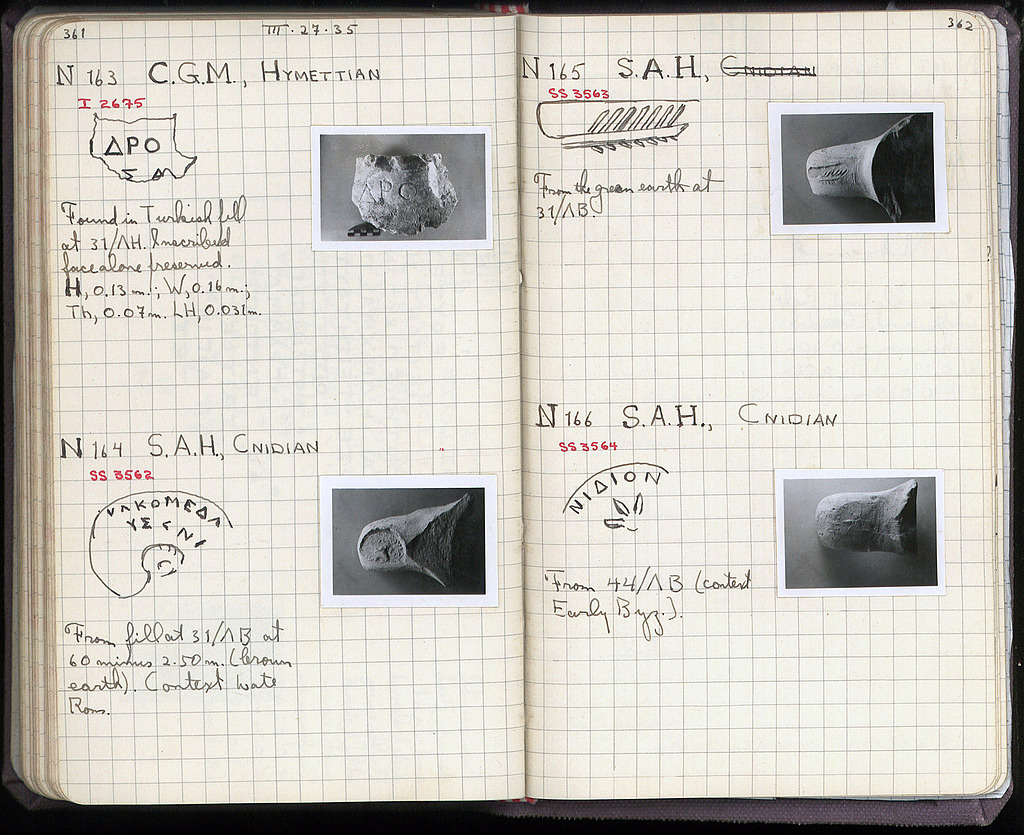 361
III · 27 · 35
N 163 C.G.M., HYMETTIAN
I 2675
ΔΡΟ
Found in Turkish fill
at 31/ΛΗ. Inscribed
face alone preserved.
H, 0.13 m.; W, 0.16 m.;
Th, 0.07 m. LH, 0.031 m.
ΔΡΟ
N 164 S.A.H., CNIDIAN
SS 3562
ΚΟΜΕΔΑ
ΥΣ
From fill at 31/ΛΒ at
60 minus 2.50 m. (brown
earth). Context Late
Rom.
362
N 165 S.A.H., CNIDIAN
SS 3563
From the green earth at
31/ΛΒ
N 166 S.A.H., CNIDIAN
SS 3564
ΝΙΔΙΟΝ
From 44/ΛΒ (context
Early Byz.).